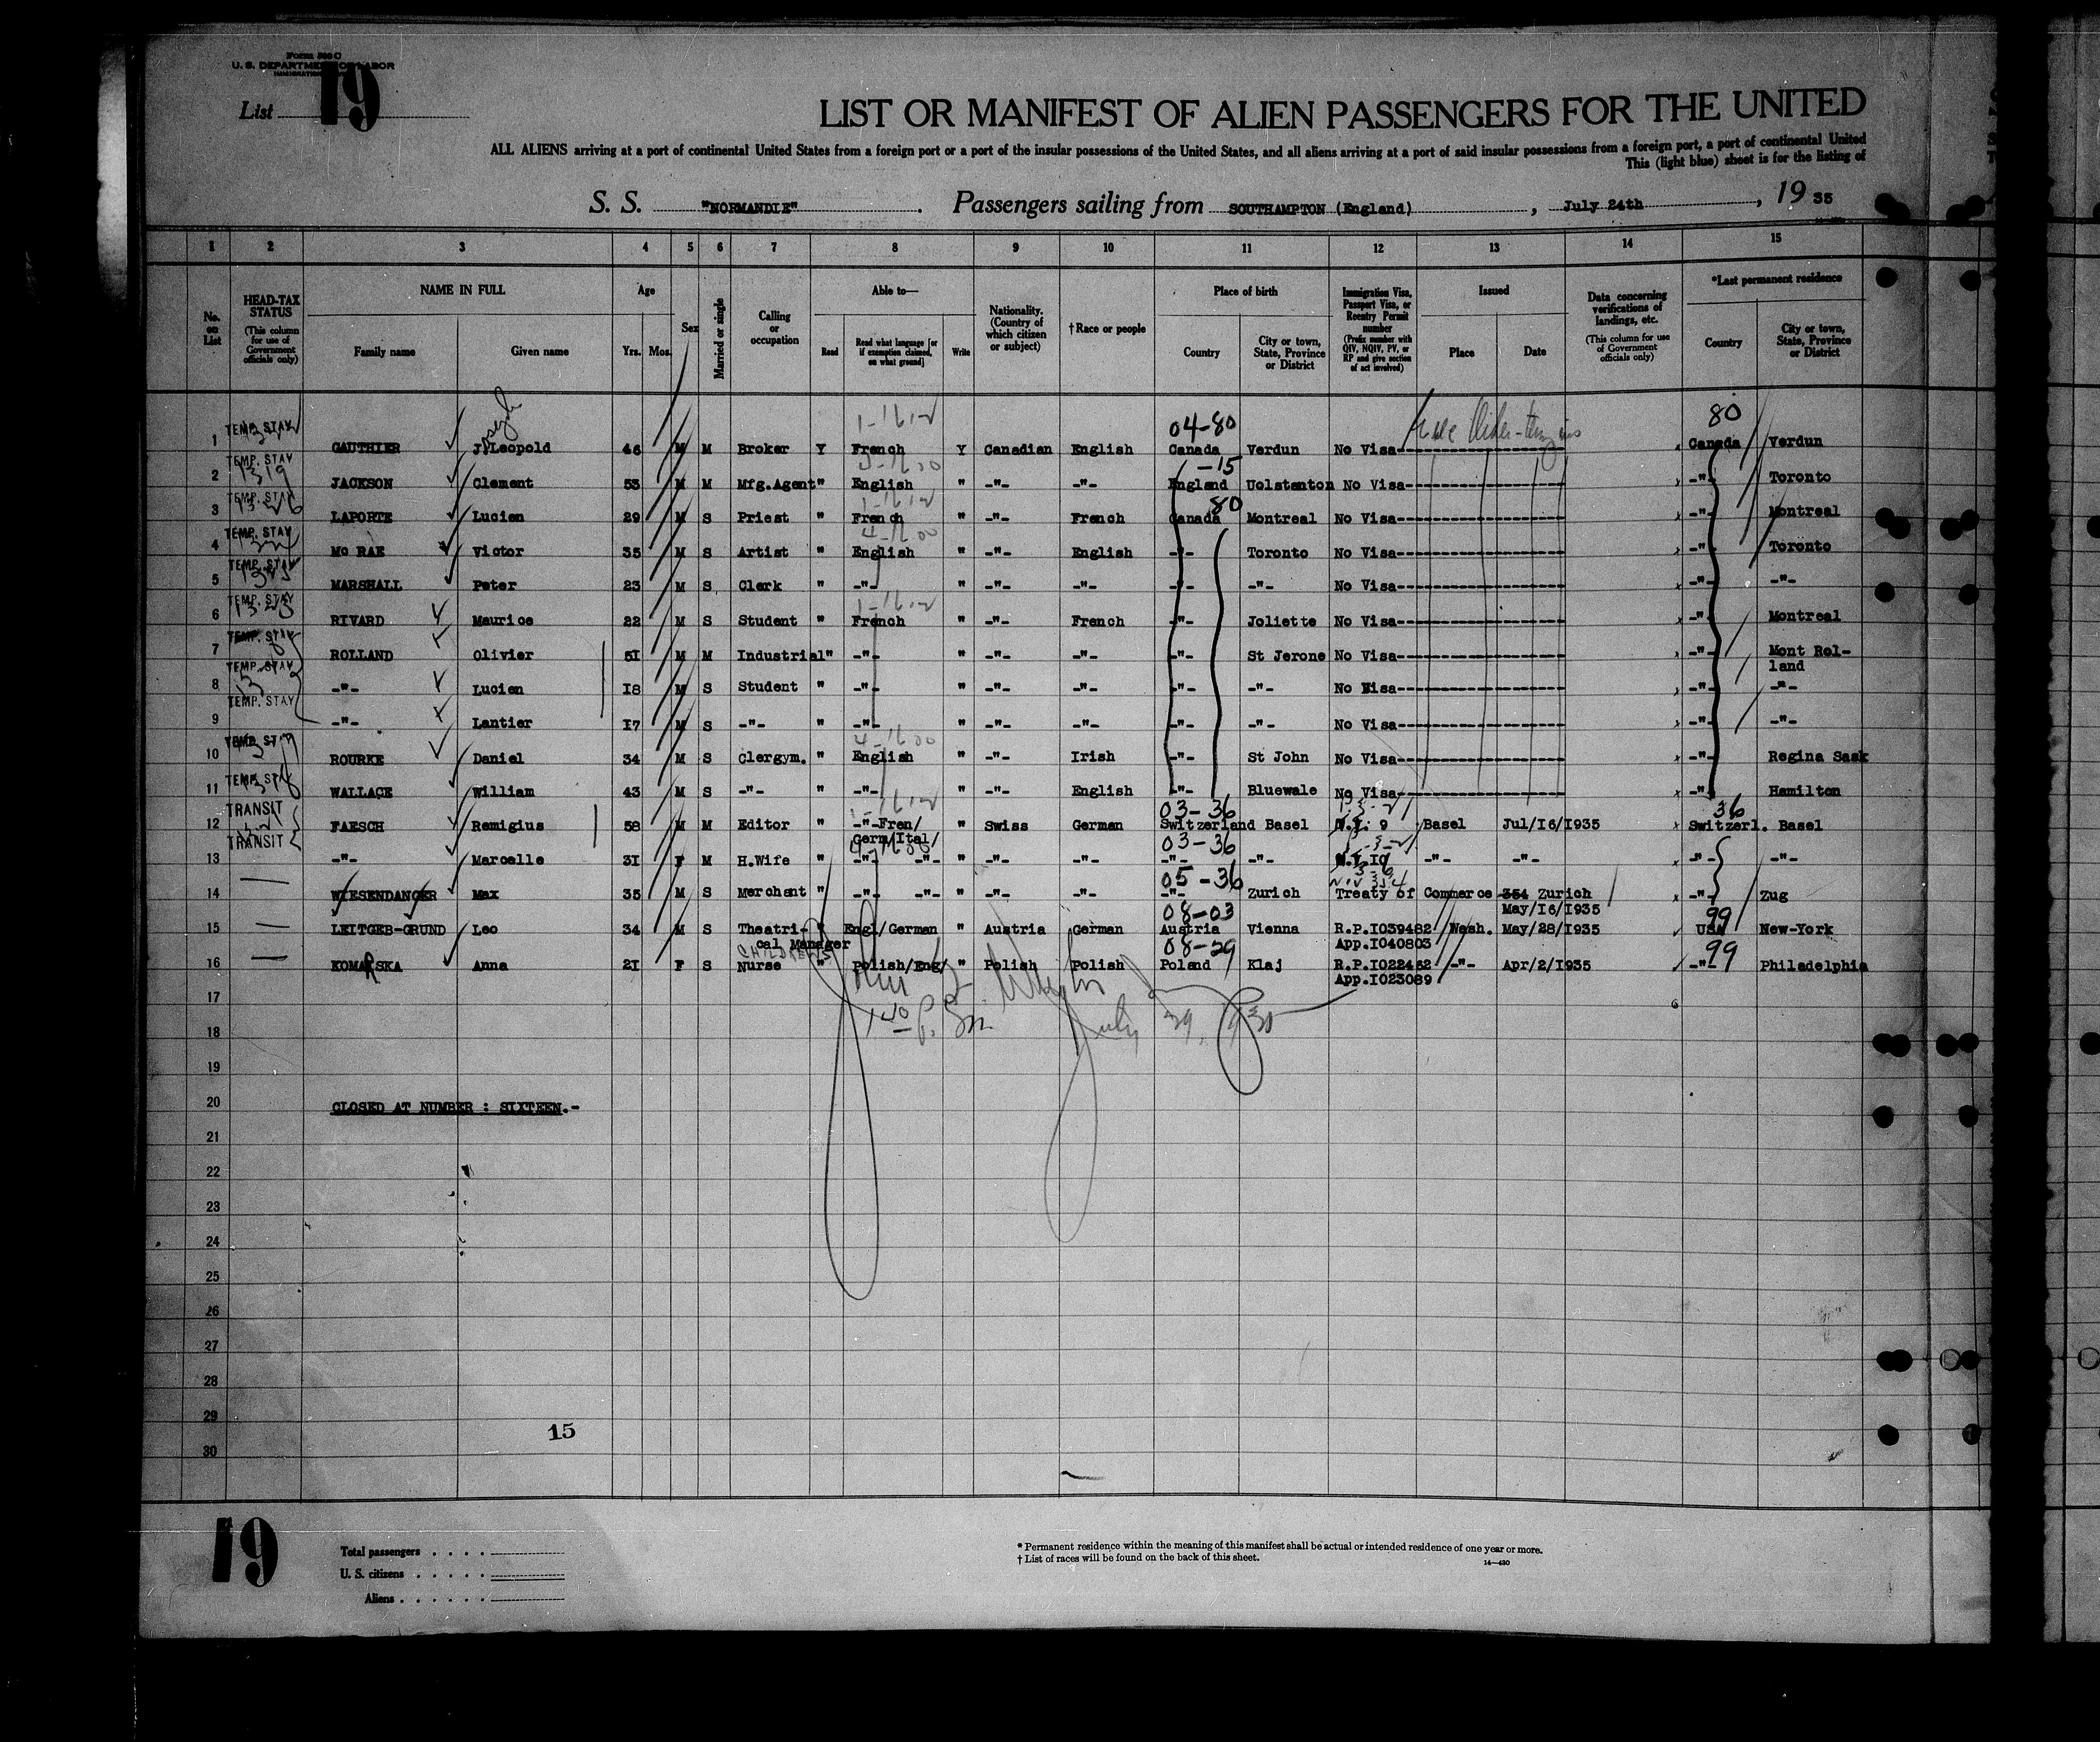 Form 500 C
U. S. DEPARTMENT OF LABOR
IMMIGRATION
List 19
LIST OR MANIFEST OF ALIEN PASSENGERS FOR THE UNITED
ALL ALIENS arriving at a port of continental United States from a foreign port or a port of the insular possessions of the United States, and all aliens arriving at a port of said insular possessions from a foreign port, a port of continental United
This (light blue) sheet is for the listing of
S. S. "NORMANDIE". Passengers sailing from SOUTHAMPTON (England), July 24th, 19 35
1 2 3 4 5 6 7 8 9 10 11 12 13 14 15
No. on List
HEAD-TAX STATUS (This column for use of Government officials only)
NAME IN FULL Family name Given name
Age Yrs. Mos.
Sex
Married or single
Calling or occupation
Able to— Read Read what language [or if exemption claimed, on what ground] Write
Nationality. (Country of which citizen or subject)
†Race or people
Place of birth Country City or town, State, Province or District
Immigration Visa, Passport Visa, or Reentry Permit number (Prefix number with QIV, NQIV, PV, or RP and give section of act involved)
Issued Place Date
Data concerning verifications of landings, etc. (This column for use of Government officials only)
*Last permanent residence Country City or town, State, Province or District
04-80 80
1 TEMP. STAY GAUTHIER J. Joseph Leopold 46 M M Broker Y French Y Canadian English Canada Verdun No Visa Canada Verdun
-15
2 TEMP. STAY JACKSON Clement 53 M M Mfg.Agent " English " -"- -"- England Uolstanton No Visa -"- Toronto
80
3 TEMP. STAY LAPORTE Lucien 29 M S Priest " French " -"- French Canada Montreal No Visa -"- Montreal
4 TEMP. STAY Mc RAE Victor 35 M S Artist " English " -"- English -"- Toronto No Visa -"- Toronto
5 TEMP. STAY MARSHALL Peter 23 M S Clerk " -"- " -"- -"- -"- -"- No Visa -"- -"-
6 TEMP. STAY RIVARD Maurice 22 M S Student " French " -"- French -"- Joliette No Visa -"- Montreal
7 TEMP. STAY ROLLAND Olivier 51 M M Industrial " -"- " -"- -"- -"- St Jerone No Visa -"- Mont Rol-
land
8 TEMP. STAY -"- Lucien 18 M S Student " -"- " -"- -"- -"- -"- No Visa -"- -"-
9 TEMP. STAY -"- Lantier 17 M S -"- " -"- " -"- -"- -"- -"- No Visa -"- -"-
10 TEMP. STAY ROURKE Daniel 34 M S Clergym. " English " -"- Irish -"- St John No Visa -"- Regina Sask
11 TEMP. STAY WALLACE William 43 M S -"- " -"- " -"- English -"- Bluewale No Visa -"- Hamilton
03-36 36
12 TRANSIT FAESCH Remigius 58 M M Editor " -"-Fren/ " Swiss German Switzerland Basel N.I. 9 Basel Jul/16/1935 Switzerl. Basel
Germ/Ital/ 03-36
13 TRANSIT -"- Marcelle 31 F M H.Wife " -"- -"- " -"- -"- -"- -"- N.I.10 -"- -"- -"- -"-
05-36
14 WIESENDANGER Max 35 M S Merchant " -"- -"- " -"- -"- -"- Zurich Treaty of Commerce 354 Zurich -"- Zug
08-03 May/16/1935 99
15 LEITGEB-GRUND Leo 34 M S Theatri- " Engl/German " Austria German Austria Vienna R.P.1039482 Wash. May/28/1935 USA New-York
cal Manager 08-29 App.1040803 99
CHILDREN'S
16 KOMARSKA Anna 21 F S Nurse " Polish/Eng/ " Polish Polish Poland Klaj R.P.1022462 -"- Apr/2/1935 -"- Philadelphia
App.1023089
17
18
19
20 CLOSED AT NUMBER : SIXTEEN.-
21
22
23
24
25
26
27
28
29 15
30
19
Total passengers
U. S. citizens
Aliens
* Permanent residence within the meaning of this manifest shall be actual or intended residence of one year or more.
† List of races will be found on the back of this sheet.
14—430